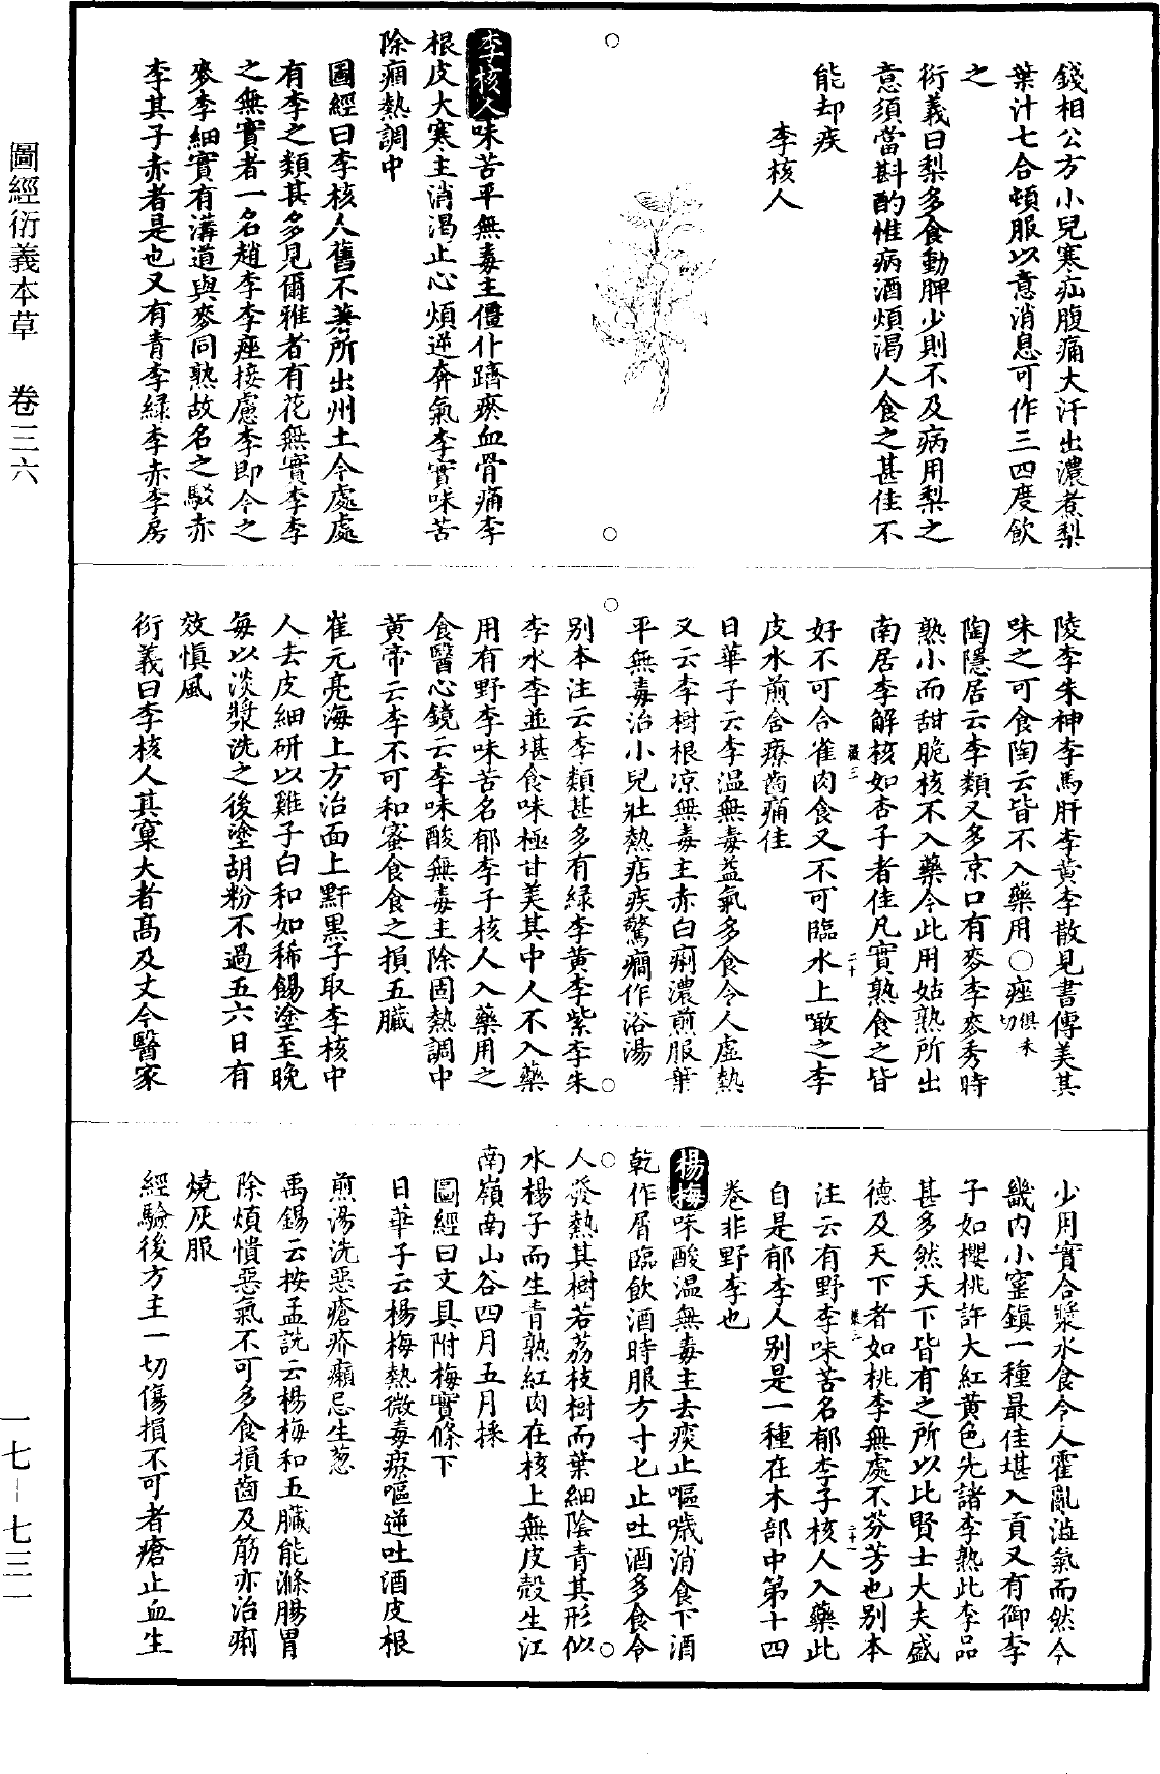 錢相公方小兒寒疝腹痛大汗出濃煮梨
葉汁七合頓服以意消息可作三四度飲
之
衍義曰梨多食動脾少則不及病用梨之
意須當斟酌惟病酒煩渴人食之甚佳不
能却疾
李核人
李核人味苦平無毒主僵仆躋瘀血骨痛李
根皮大寒主消渴止心煩逆奔氣李實味苦
除痼熱調中
圖經曰李核人舊不著所出州土今處處
有李之類甚多見爾雅者有花無實李李
之無實者一名趙李李痤接慮李即今之
麥李細實有溝道與麥同熟故名之駁赤
李其子赤者是也又有青李綠李赤李房
陵李朱神李馬肝李黃李散見書傳美其
味之可食陶云皆不入藥用○痤俱未切
陶隱居云李類又多京口有麥李麥秀時
熟小而甜脆核不入藥今此用姑熟所出
南居李解核如杏子者佳凡實熟食之皆
好不可合雀肉食又不可臨水上噉之李
皮水煎含療齒痛佳
日華子云李溫無毒益氣多食令人虛熱
又云李樹根涼無毒主赤白痢濃煎服葉
平無毒治小兒壯熱痁疾驚癇作浴湯
別本注云李類甚多有綠李黃李紫李朱
李水李並堪食味極甘美其中人不入藥
用有野李味苦名郁李子核人入藥用之
食醫心鏡云李味酸無毒主除固熱調中
黃帝云李不可和蜜食食之損五臟
崔元亮海上方治面上䵟黑子取李核中
人去皮細研以雞子白和如稀餳塗至晚
每以淡漿洗之後塗胡粉不過五六日有
效慎風
衍義曰李核人其窠大者高及丈今醫家
少用實合漿水食令人霍亂澁氣而然今
畿內小窰鎮一種最佳堪入貢又有御李
子如櫻桃許大紅黃色先諸李熟此李品
甚多然天下皆有之所以比賢士大夫盛
德及天下者如桃李無處不芬芳也別本
注云有野李味苦名郁李子核人入藥此
自是郁李人別是一種在木部中第十四
卷非野李也
楊梅味酸溫無毒主去痰止嘔噦消食下酒
乾作屑臨飲酒時服方寸匕止吐酒多食令
人發熱其樹若荔枝樹而葉細陰青其形似
水楊子而生青熟紅肉在核上無皮殼生江
南嶺南山谷四月五月採
圖經曰文具附梅實條下
日華子云楊梅熱微毒療嘔逆吐酒皮根
煎湯洗惡瘡疥癩忌生葱
禹錫云按孟詵云楊梅和五臟能滌腸胃
除煩憒惡氣不可多食損齒及筋亦治痢
燒灰服
經驗後方主一切傷損不可者瘡止血生
圖經衍義本草　卷三六
一七－七三一